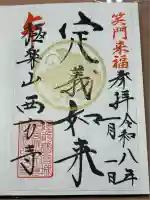 笑門来福
奉拝
令和八年
一月一日
定義如来
極楽山西方寺